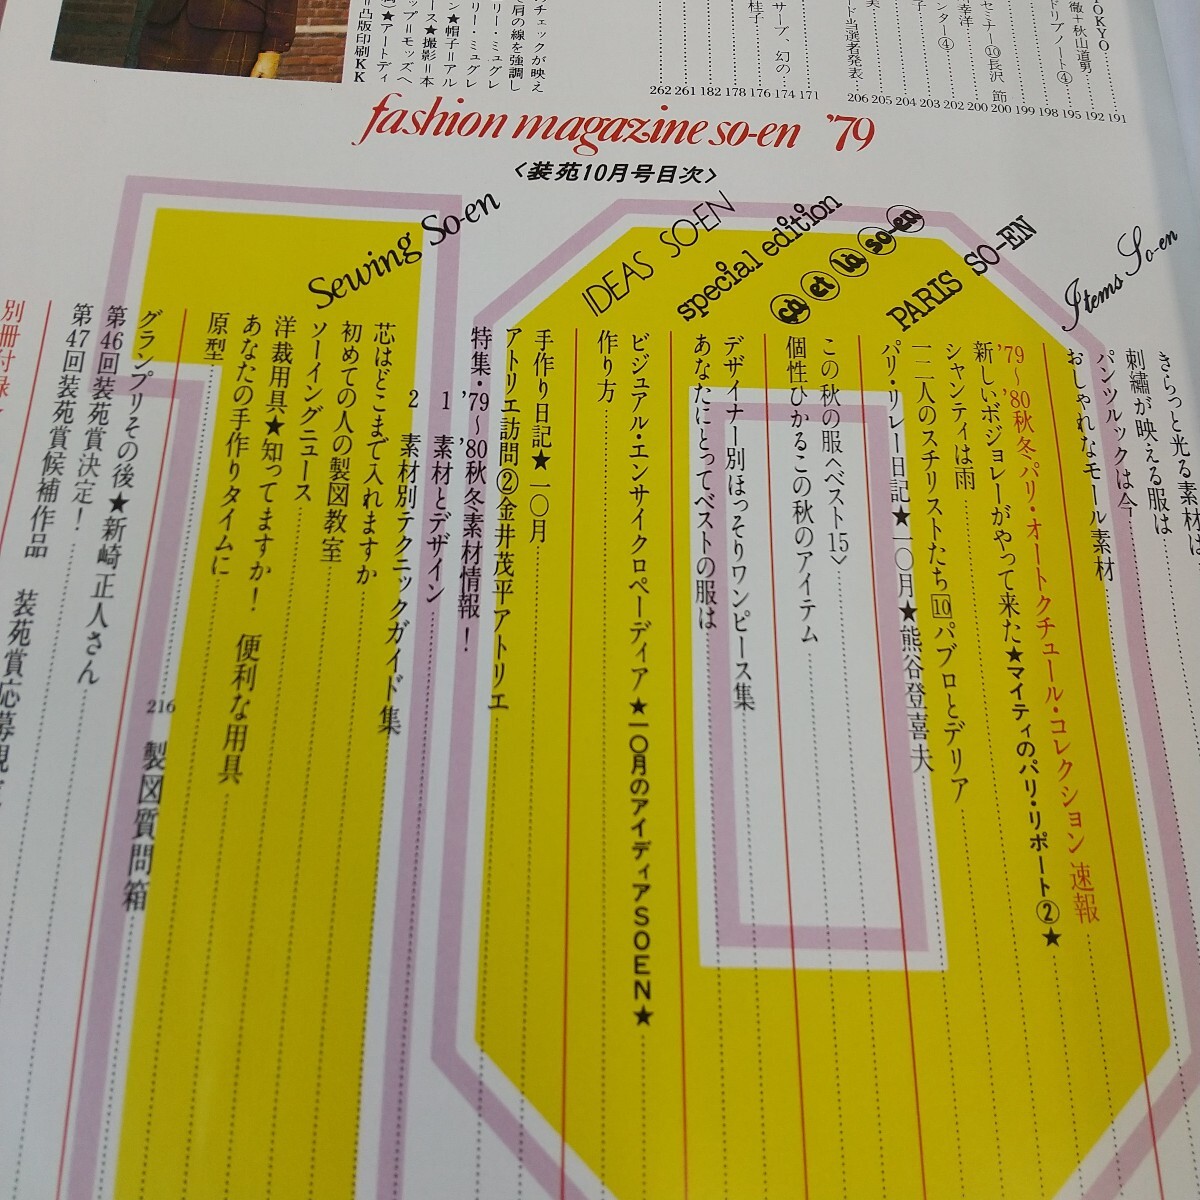 TOKYO
徹＋秋山道男
ドリブノート④
セミナー⑩長沢 節
ンター④
ート当選者発表
サーブ、幻の
191
192
195
198
199
200
200
202
203
204
205
206
171
174
176
178
182
261
262
のチェックが映え
て肩の線を強調し
リー・ミュグレ
ン★帽子＝アル
ース★撮影＝本
ップ＝モッズヘ
★アートディ
＝凸版印刷KK
fashion magazine so-en '79
〈装苑10月号目次〉
Items So-en
きらっと光る素材は
刺繡が映える服は
パンツルックは今
おしゃれなモール素材
PARIS SO-EN
'79〜'80秋冬パリ・オートクチュール・コレクション速報
新しいボジョレーがやって来た★マイティのパリ・リポート②★
シャンティは雨
一二人のスチリストたち⑩パブロとデリア
パリ・リレー日記★一〇月★熊谷登喜夫
ça et là so-en
この秋の服〈ベスト15〉
個性ひかるこの秋のアイテム
special edition
デザイナー別ほっそりワンピース集
あなたにとってベストの服は
IDEAS SO-EN
ビジュアル・エンサイクロペーディア★一〇月のアイディアSOEN★
作り方
手作り日記★一〇月
アトリエ訪問②金井茂平アトリエ
特集・'79〜'80秋冬素材情報！
1 素材とデザイン
2 素材別テクニックガイド集
Sewing So-en
芯はどこまで入れますか
初めての人の製図教室
ソーイングニュース
洋裁用具★知ってますか！ 便利な用具
あなたの手作りタイムに
原型
216 製図質問箱
グランプリその後★新崎正人さん
第46回装苑賞決定！
第47回装苑賞候補作品 装苑賞応募規定
別冊付録